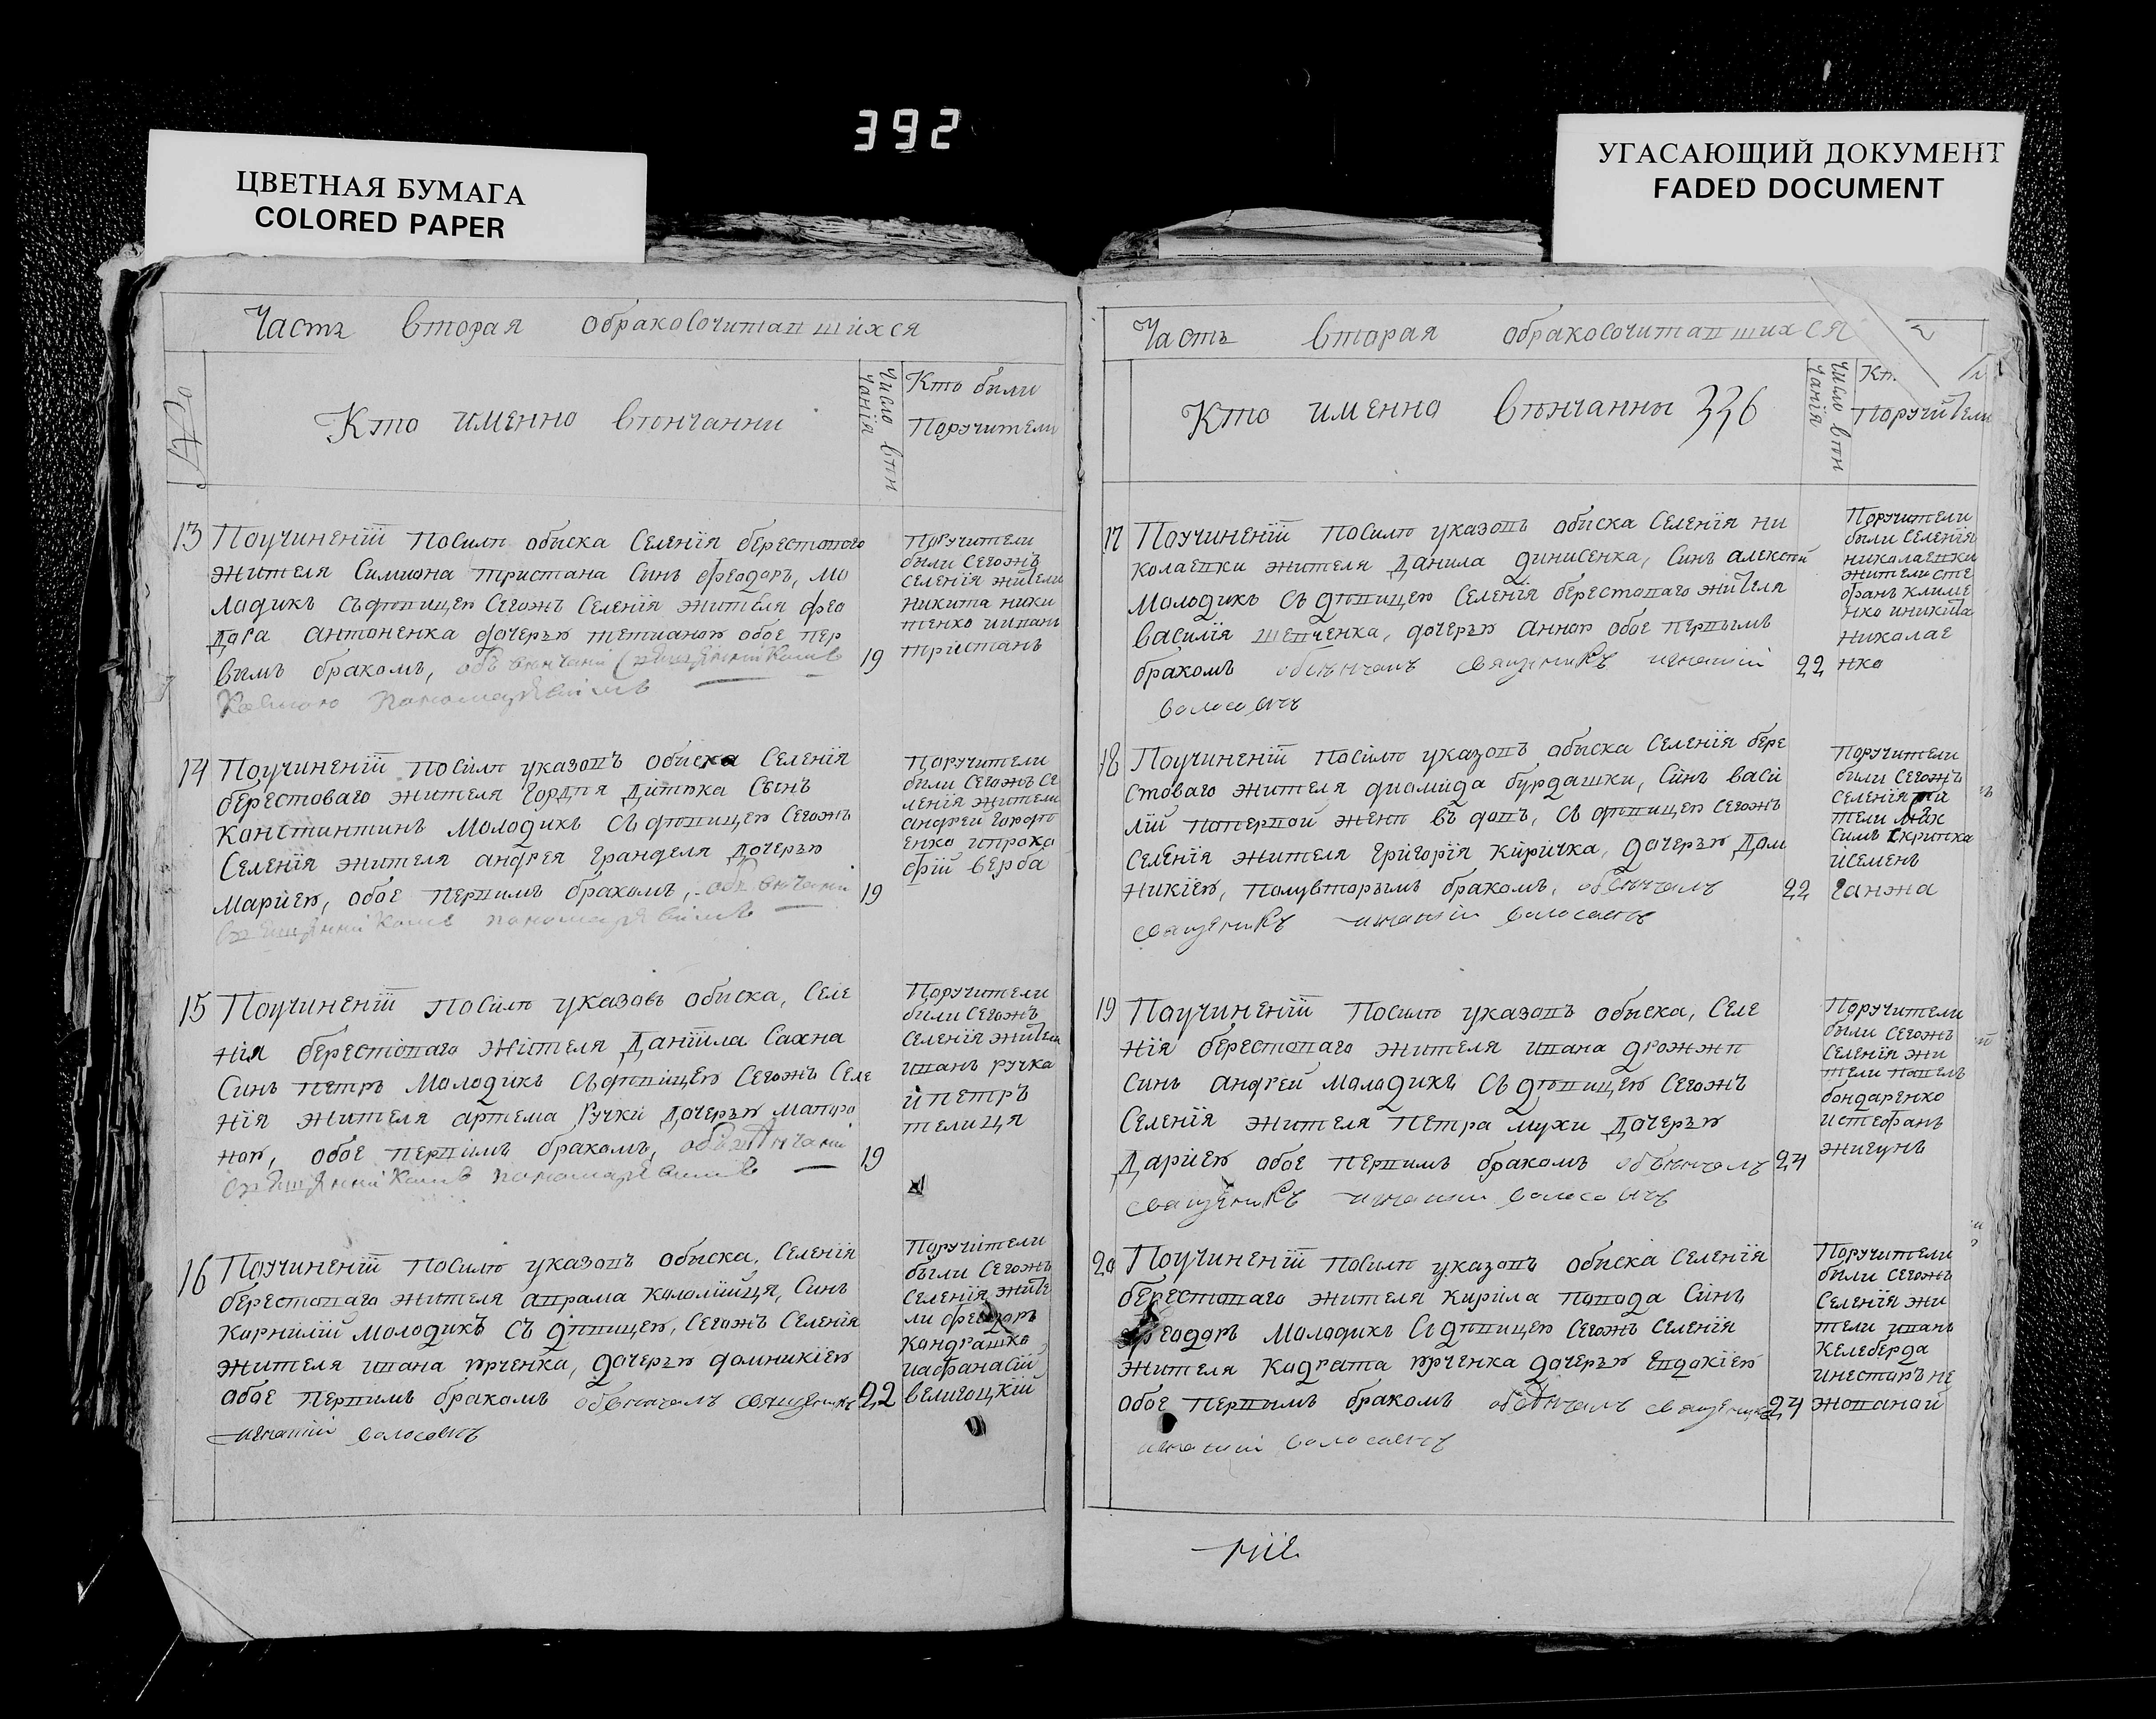 392
ЦВЕТНАЯ БУМАГА
COLORED PAPER
УГАСАЮЩИЙ ДОКУМЕНТ
FADED DOCUMENT
Часть вторая обракосочитавшихся
№
Кто именно втнчанни
Число втн
чанія
Кто были
Поручители
13 Поучиненій посилѣ обиска Селенія берестового
жителя Симиона тристана Синъ феодоръ, мо
лодикъ съ дѣвицею Сегожъ Селенія жителя фео
дора антоненка дочерью тетианою обое пер
вымъ бракомъ, обвѣнчани Священникомъ 19
Космою Пономаревимъ
Поручители
были Сегожъ
Селенія жители
никита ники
тенко иивань
тристань
14 Поучиненій посилѣ указовъ обиска Селенія
берестоваго жителя Гордѣя Дитюка Сынъ
Константинъ молодикъ съ дѣвицею Сегожъ
Селенія жителя андрея Гранделя дочерью
мариею, обое первимъ бракомъ, обвѣнчани 19
Священникомъ пономаревимъ
Поручители
были Сегожъ Се
ленія жители
андрей Гордѣ
енко ипроко
фій верба
15 Поучиненій посилѣ указовъ обиска, Селе
нія берестоваго жителя Даніила Сахна
Синъ петръ молодикъ съ дѣвицею Сегожъ Селе
нія жителя артема Ручки дочерью матро
ною, обое первимъ бракомъ, обвѣнчани 19
Священникомъ пономаревимъ
Поручители
были Сегожъ
Селенія жители
иванъ ручка
и петръ
телиця
16 Поучиненій посилѣ указовъ обиска, Селенія
берестоваго жителя аврама коломійця, Синъ
корнилій молодикъ съ дѣвицею, Сегожъ Селенія
жителя ивана юрченка, дочерью домникіею
обое первимъ бракомъ обвѣнчалъ священникъ 22
игнатій волосовичъ
Поручители
были Сегожъ
Селенія жите
ли феодоръ
кондрашко
иафанасій
велигоцкій
Часть вторая обракосочитавшихся
Кто именно втнчанны 336
Число втн
чанія
Кт
Поручители
17 Поучиненій посилѣ указовъ обиска Селенія ни
колаевки жителя Данила динисенка, Синъ алексѣй
молодикъ съ дѣвицею Селенія берестоваго жителя
василія шевченка, дочерью анною обое первымъ
бракомъ обвѣнчалъ священникъ игнатій 22
волосовичъ
Поручители
были Селенія
николаевки
жители сте
фанъ климе
нко иникита
николае
нко
18 Поучиненій посилѣ указовъ обыска Селенія бере
стоваго жителя диамида бурдашки, Синъ васи
лій поперной женѣ въ довъ, съ дѣвицею Сегожъ
Селенія жителя григорія киричка, дочерью дом
никіею, полувторымъ бракомъ, обвѣнчалъ 22
священикъ игнатій волосовичъ
Поручители
были Сегожъ
Селенія жи
тели Мак
симъ Скрипка
исеменъ
ганжа
19 Поучиненій посилѣ указовъ обыска, Селе
нія берестоваго жителя ивана дрожжѣ
Синъ андрей молодикъ съ дѣвицею Сегожъ
Селенія жителя петра мухи дочерью
Дариею обое первимъ бракомъ обвѣнчалъ 24
священикъ игнатій волосовичъ
Поручители
были Сегожъ
Селенія жи
тели павелъ
бондаренко
истефанъ
жигунъ
20 Поучиненій посилѣ указовъ обиска Селенія
берестоваго жителя кирила попода Синъ
феодоръ молодикъ съ дѣвицею Сегожъ Селенія
жителя кодрата юрченка дочерью евдокіею
обое первимъ бракомъ обвѣнчалъ священикъ 24
игнатій волосовичъ
Поручители
были Сегожъ
Селенія жи
тели иванъ
келеберда
инесторъ не
жованой